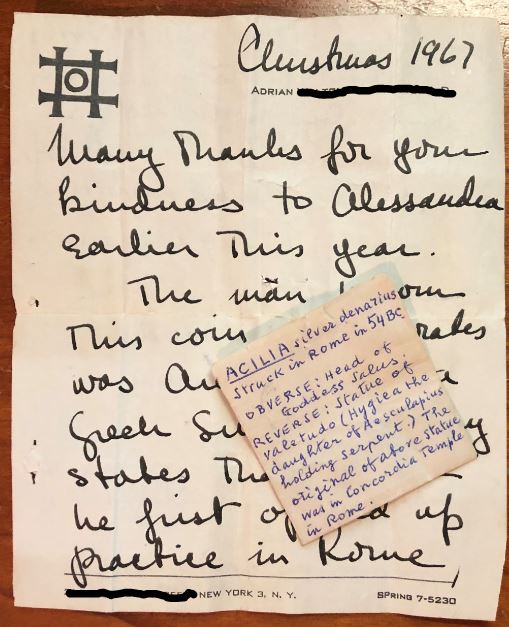 Christmas 1967
ADRIAN
Many Thanks for your
kindness to Alessandra
earlier This year.
The man
This coin
was
Greek
states
he first up
practice in Rome
NEW YORK 3, N. Y.
SPRING 7-5230
ACILIA silver denarius
struck in Rome in 54 BC
OBVERSE: Head of
Goddess Salus;
REVERSE: Statue of
Valetudo (Hygiea the
daughter of Aesculapius
holding serpent.) The
original of above statue
was in Concordia Temple
in Rome.